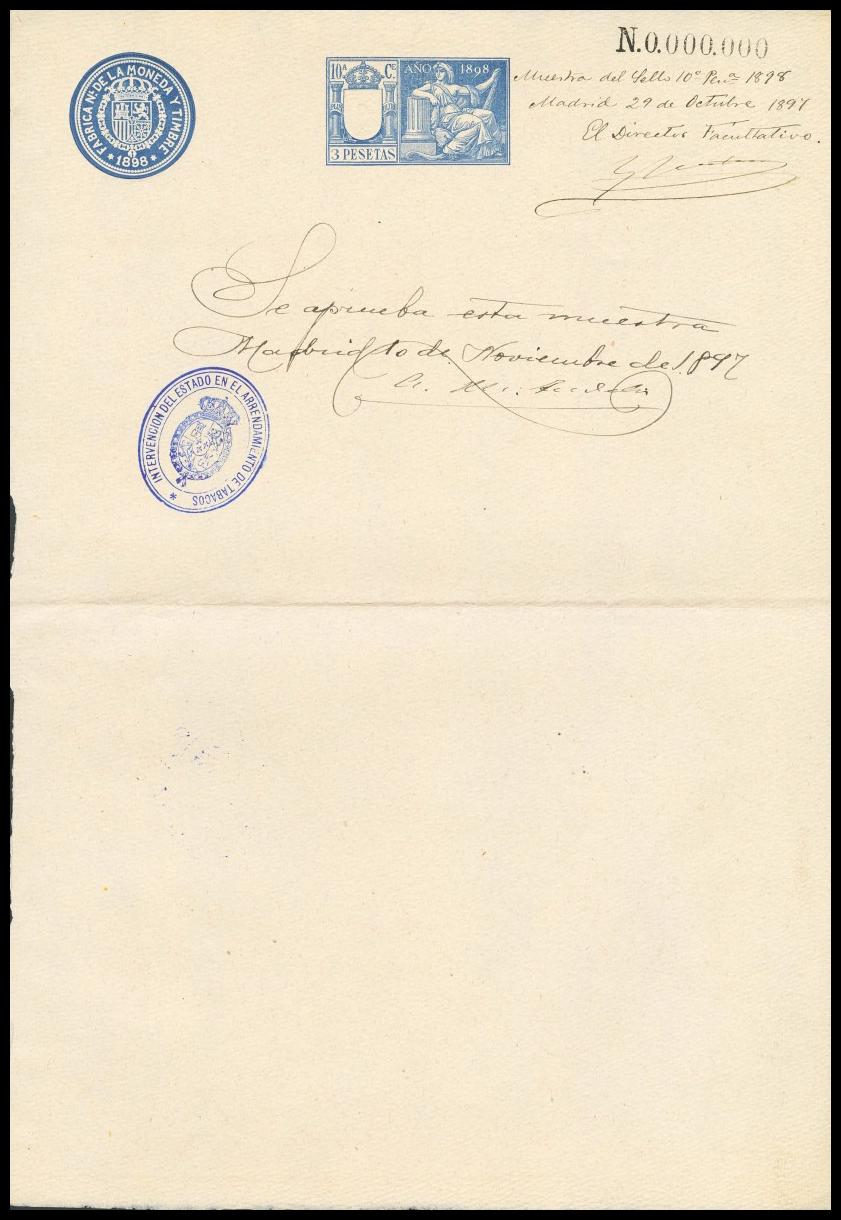 N.0.000.000
FABRICA Nal. DE LA MONEDA Y TIMBRE
* 1898 *
10ª Ce.
AÑO 1898
3 PESETAS
Muestra del Sello 10º 1898
Madrid 29 de Octubre 1897
El Director Facultativo.
Se aprueba esta muestra
Madrid 10 de Noviembre de 1897
INTERVENCION DEL ESTADO EN EL ARRENDAMIENTO DE TABACOS *